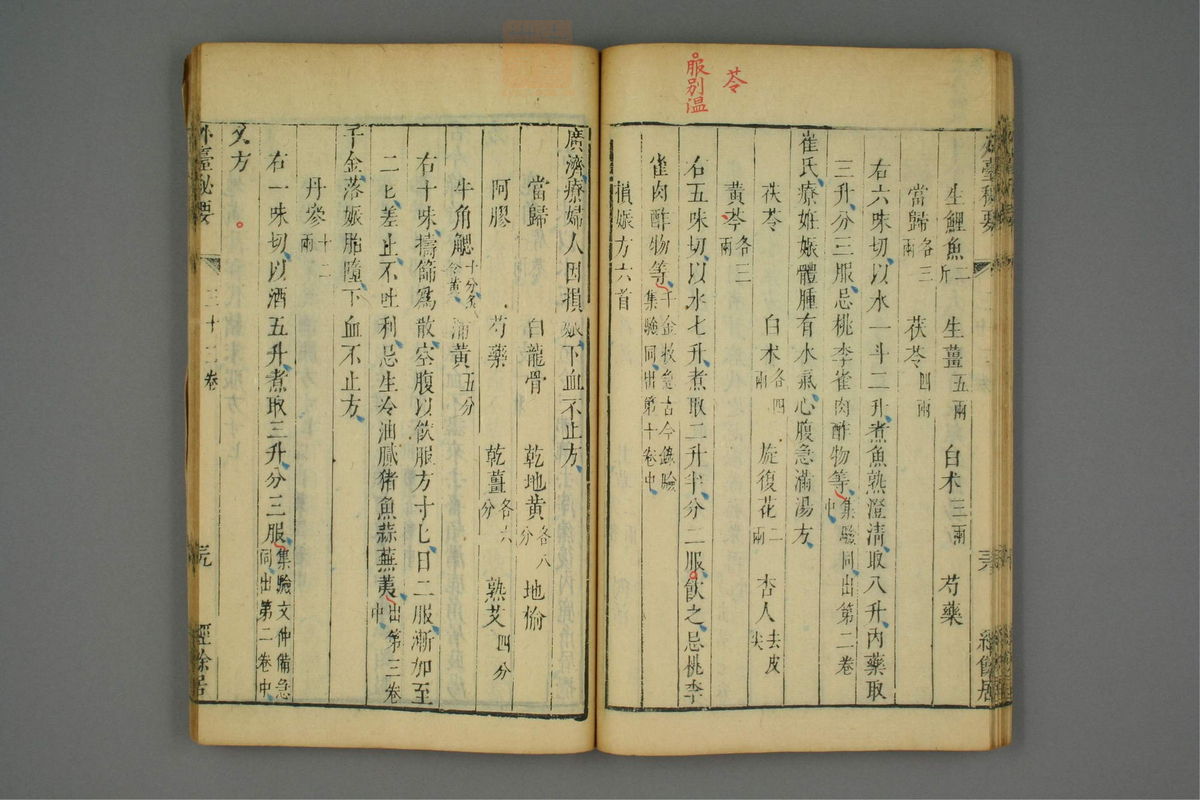 苓
服別温
生鯉魚二斤 生薑五兩 白朮三兩 芍藥
當歸各三兩 茯苓四兩
右六味切以水一斗二升煮魚熟澄清取八升內藥取
三升分三服忌桃李雀肉酢物等集驗同出第二卷中
崔氏療妊娠體腫有水氣心腹急滿湯方
茯苓 白朮各四兩 旋復花二兩 杏人去皮尖
黃芩各三兩
右五味切以水七升煮取二升半分二服飲之忌桃李
雀肉酢物等千金救急古今錄驗集驗同出第十卷中
損娠方六首
廣濟療婦人因損娠下血不止方
當歸 白龍骨 乾地黃各八分 地愉
阿膠 芍藥 乾薑各六分 熟艾四分
牛角䚡十分炙令黃 蒲黃五分
右十味擣篩為散空腹以飲服方寸匕日二服漸加至
二匕差止不吐利忌生冷油膩猪魚蒜蕪荑出第三卷中
千金落娠胎墮下血不止方
丹參十二兩
右一味切以酒五升煮取三升分三服集驗文仲備急同出第二卷中
又方
外臺秘要 三十三卷 經餘居